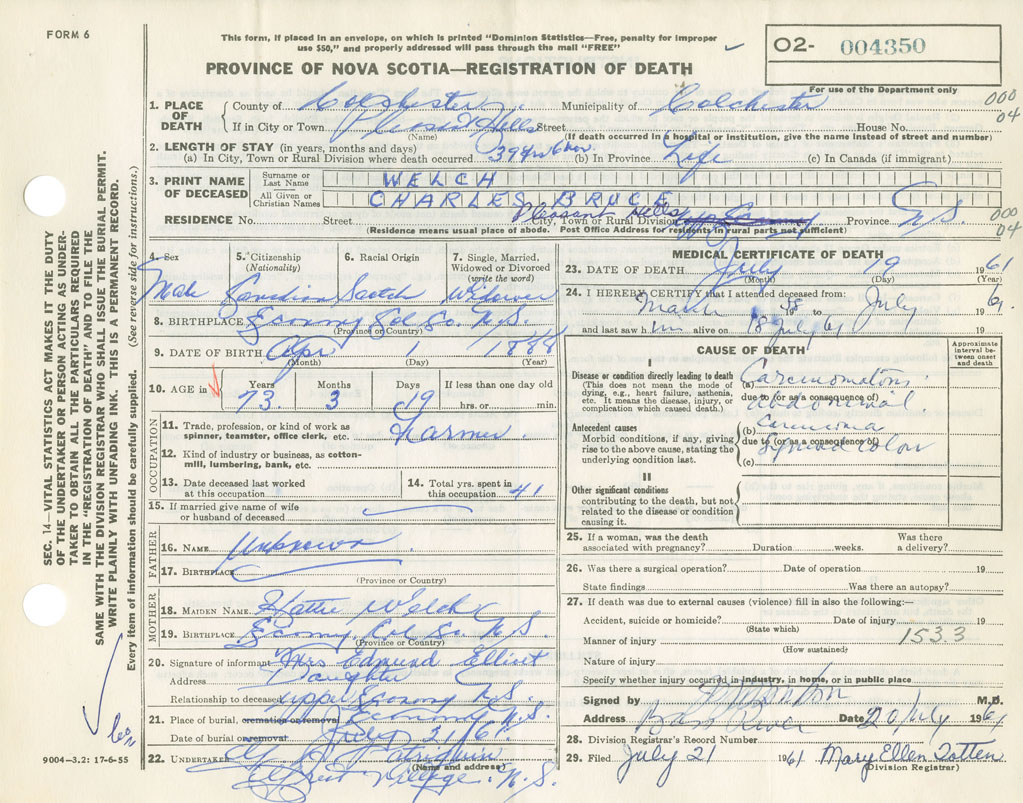 FORM 6
This form, if placed in an envelope, on which is printed "Dominion Statistics—Free, penalty for improper
use $50," and properly addressed will pass through the mail "FREE"
O2- 004350
PROVINCE OF NOVA SCOTIA—REGISTRATION OF DEATH
For use of the Department only
000
04
1. PLACE OF DEATH
County of Colchester Municipality of Colchester
If in City or Town Pleasant Hills Street House No.
(Name) (If death occurred in a hospital or institution, give the name instead of street and number)
2. LENGTH OF STAY (in years, months and days)
(a) In City, Town or Rural Division where death occurred 39 yrs 6 mos. (b) In Province Life (c) In Canada (if immigrant)
3. PRINT NAME OF DECEASED
Surname or Last Name WELCH
All Given or Christian Names CHARLES BRUCE
Pleasant Hills
RESIDENCE No. Street City, Town or Rural Division Province N.S.
000
04
(Residence means usual place of abode. Post Office Address for residents in rural parts not sufficient)
4. Sex Male
5. Citizenship (Nationality) Canadian
6. Racial Origin Scotch
7. Single, Married, Widowed or Divorced (write the word) Widower
8. BIRTHPLACE Economy Col. Co. N.S.
(Province or Country)
9. DATE OF BIRTH Apr 1 1888
(Month) (Day) (Year)
10. AGE in Years 73 Months 3 Days 19 If less than one day old hrs. or min.
OCCUPATION
11. Trade, profession, or kind of work as spinner, teamster, office clerk, etc. Farmer
12. Kind of industry or business, as cotton-mill, lumbering, bank, etc.
13. Date deceased last worked at this occupation
14. Total yrs. spent in this occupation 41
15. If married give name of wife or husband of deceased
FATHER
16. NAME Unknown
17. BIRTHPLACE
(Province or Country)
MOTHER
18. MAIDEN NAME Hattie Welch
19. BIRTHPLACE Economy Col. Co. N.S.
(Province or Country)
20. Signature of informant Mrs Edmund Elliot
Address Daughter
Relationship to deceased Upper Economy N.S.
21. Place of burial, cremation or removal Economy N.S.
Date of burial or removal July 21/61
22. UNDERTAKER
(Name and address)
Village. N.S.
MEDICAL CERTIFICATE OF DEATH
23. DATE OF DEATH July 19 1961
(Month) (Day) (Year)
24. I HEREBY CERTIFY that I attended deceased from:
March 1958 to July 1961
and last saw him alive on 18 July 61 19
CAUSE OF DEATH
Approximate interval between onset and death
I
Disease or condition directly leading to death
(This does not mean the mode of dying, e.g., heart failure, asthenia, etc. It means the disease, injury, or complication which caused death.)
(a) Carcinomatous
due to (or as a consequence of)
abdominal
Antecedent causes
Morbid conditions, if any, giving rise to the above cause, stating the underlying condition last.
(b) carcinoma
due to (or as a consequence of)
(c) sigmoid colon
II
Other significant conditions
contributing to the death, but not related to the disease or condition causing it.
25. If a woman, was the death associated with pregnancy? Duration weeks. Was there a delivery?
26. Was there a surgical operation? Date of operation 19
State findings Was there an autopsy?
27. If death was due to external causes (violence) fill in also the following:—
Accident, suicide or homicide? Date of injury 19
(State which)
Manner of injury 153.3
(How sustained)
Nature of injury
Specify whether injury occurred in industry, in home, or in public place
Signed by M.D.
Address Bass River Date 20 July 1961
28. Division Registrar's Record Number
29. Filed July 21 1961 Mary Ellen Totten
(Division Registrar)
SEC. 14—VITAL STATISTICS ACT MAKES IT THE DUTY
OF THE UNDERTAKER OR PERSON ACTING AS UNDER-
TAKER TO OBTAIN ALL THE PARTICULARS REQUIRED
IN THE "REGISTRATION OF DEATH" AND TO FILE THE
SAME WITH THE DIVISION REGISTRAR WHO SHALL ISSUE THE BURIAL PERMIT.
WRITE PLAINLY WITH UNFADING INK. THIS IS A PERMANENT RECORD.
Every item of information should be carefully supplied. (See reverse side for instructions.)
9004—3.2: 17-6-55